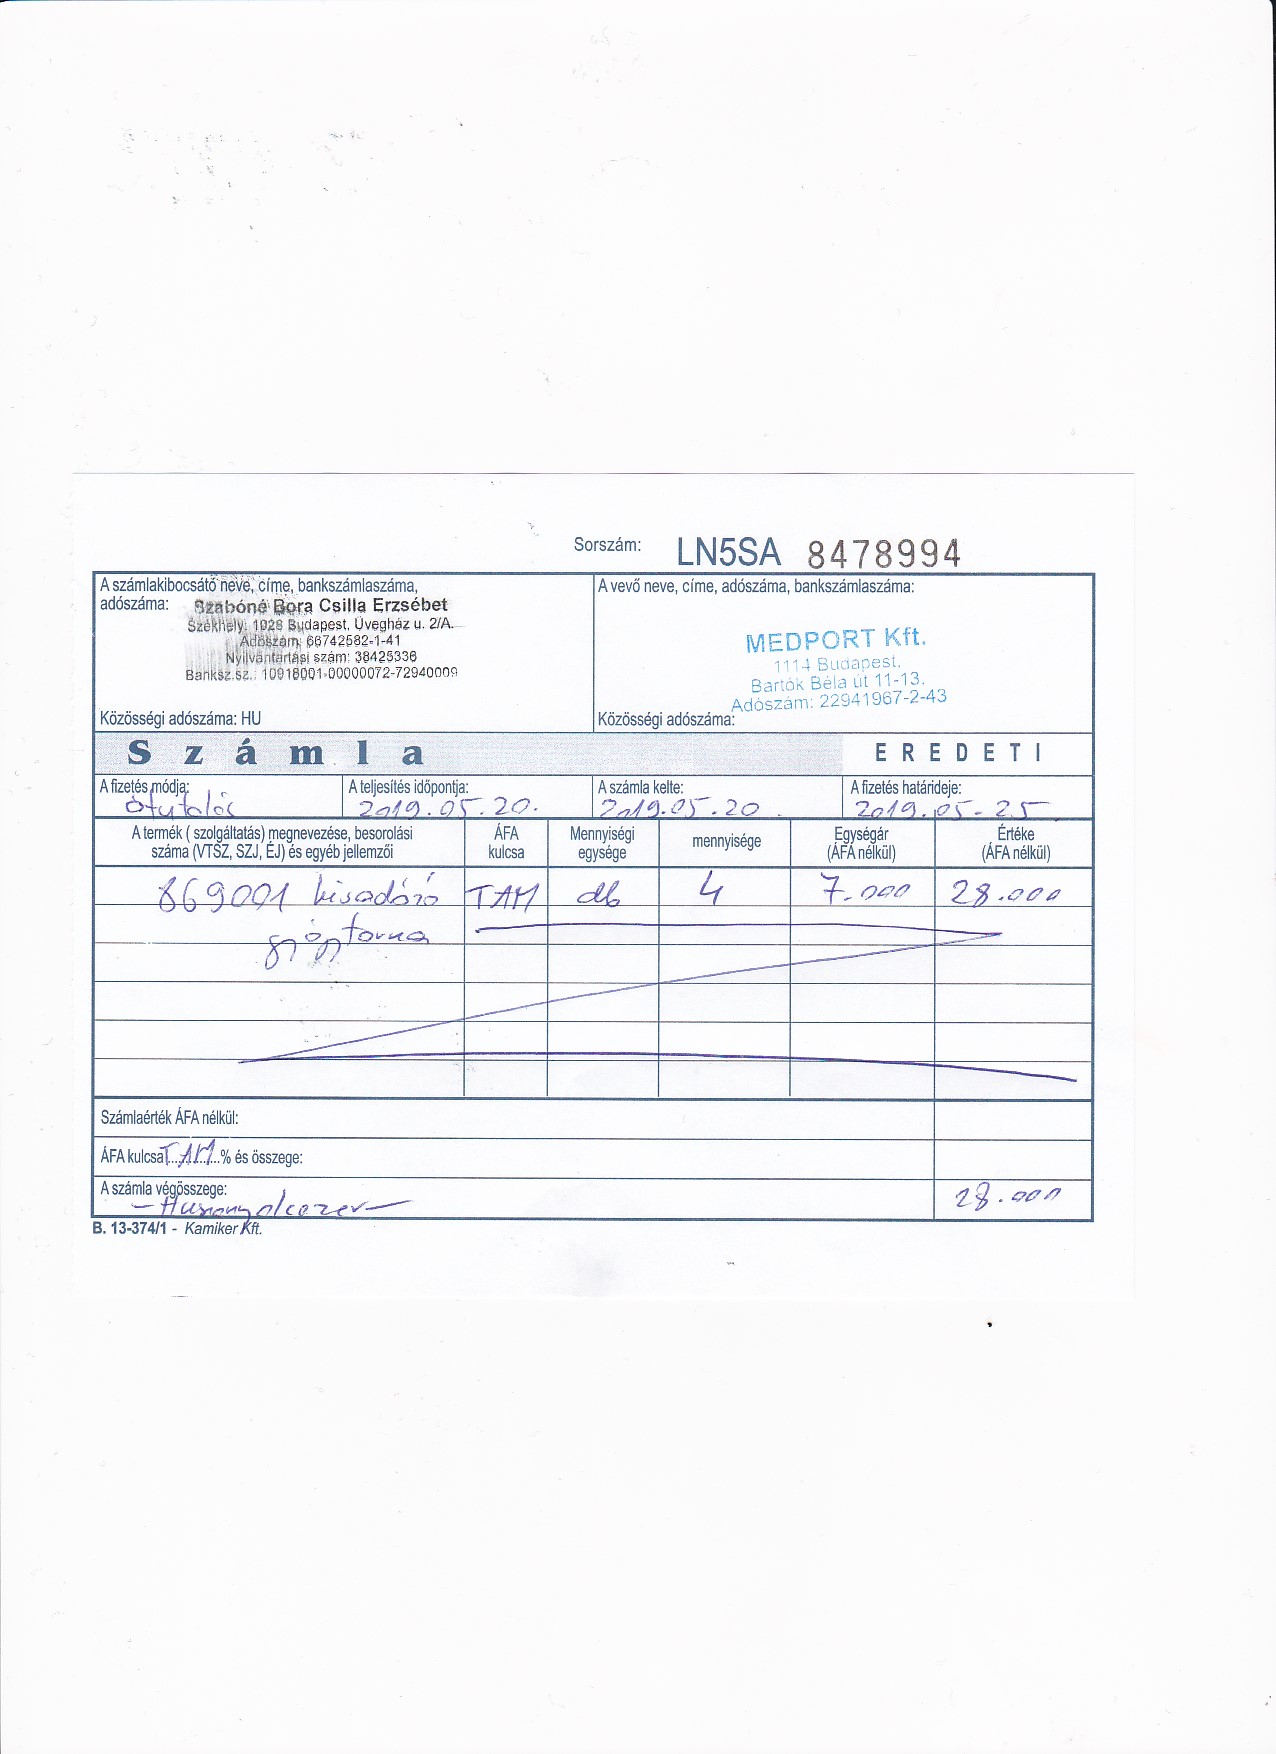 Sorszám: LN5SA 8478994
A számlakibocsátó neve, címe, bankszámlaszáma,
adószáma:
Szabóné Bora Csilla Erzsébet
Székhely: 1028 Budapest, Üvegház u. 2/A.
Adószám: 66742582-1-41
Nyilvántartási szám: 38425336
Banksz.sz.: 10918001-00000072-72940009
Közösségi adószáma: HU
A vevő neve, címe, adószáma, bankszámlaszáma:
MEDPORT Kft.
1114 Budapest,
Bartók Béla út 11-13.
Adószám: 22941967-2-43
Közösségi adószáma:
Számla EREDETI
A fizetés módja: A teljesítés időpontja: A számla kelte: A fizetés határideje:
Átutalás 2019.05.20. 2019.05.20. 2019.05-25
A termék ( szolgáltatás) megnevezése, besorolási ÁFA Mennyiségi mennyisége Egységár Értéke
száma (VTSZ, SZJ, ÉJ) és egyéb jellemzői kulcsa egysége (ÁFA nélkül) (ÁFA nélkül)
869001 kisadózó TAM db 4 7.000 28.000
gyógytorna
Számlaérték ÁFA nélkül:
ÁFA kulcsa TAM % és összege:
A számla végösszege:
- Huszonnyolcezer - 28.000
B. 13-374/1 - Kamiker Kft.